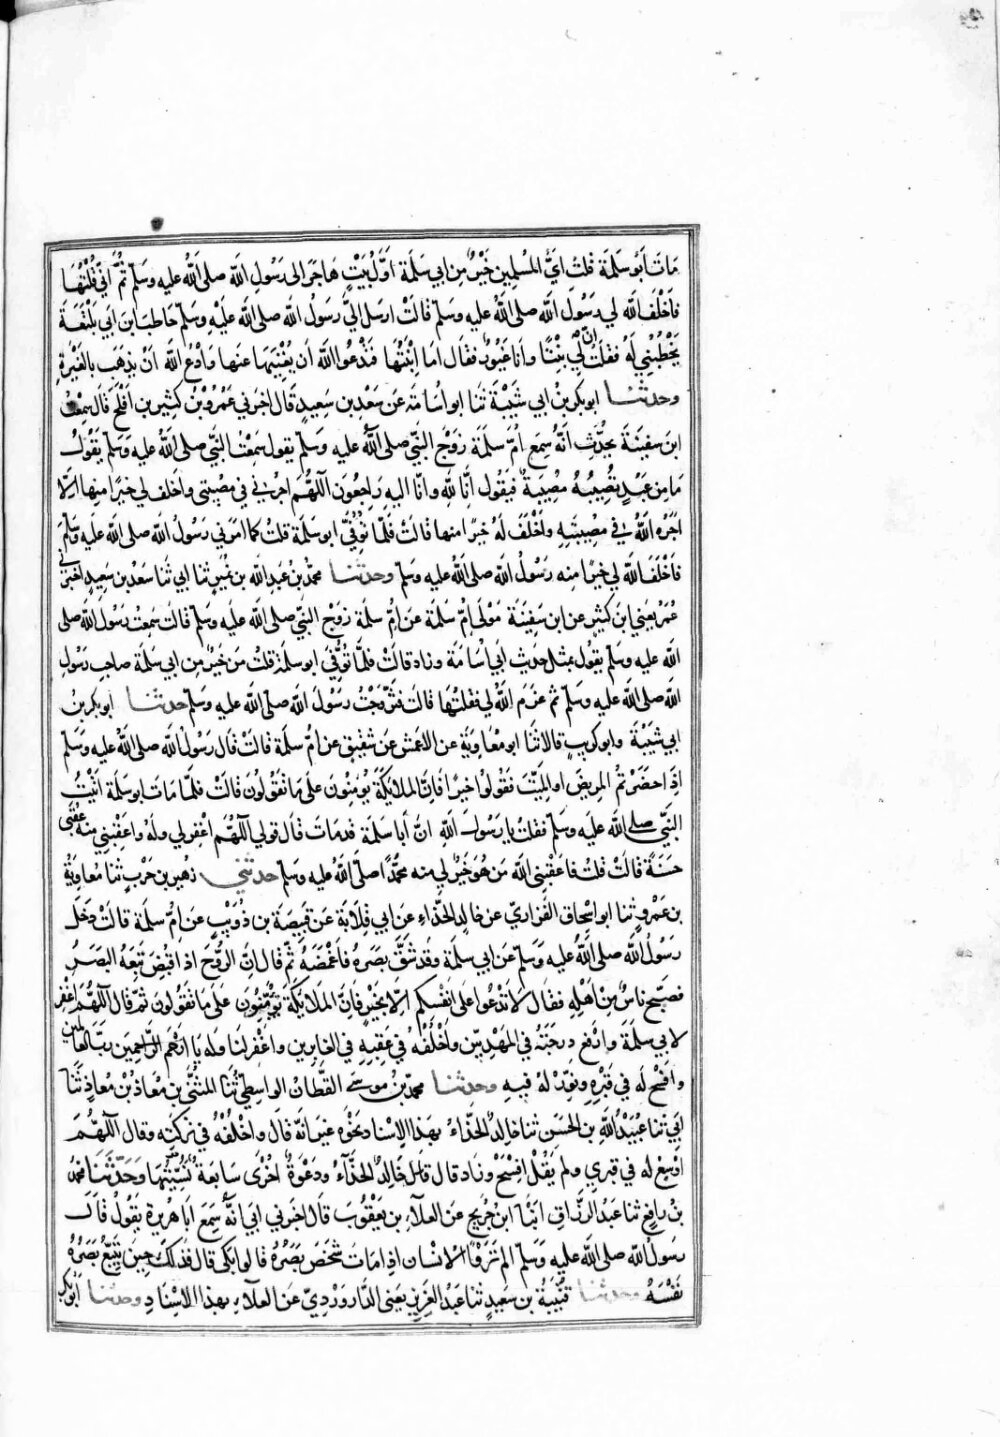 مات ابو سلمة قلت اي المسلمين خير من ابي سلمة اول بيت هاجر الى رسول الله صلى الله عليه وسلم ثم اني قلتها
فاخلف الله لي رسول الله صلى الله عليه وسلم قالت ارسل الي رسول الله صلى الله عليه وسلم حاطب ابن ابي بلتعة
يخطبني له فقلت ان لي بنتا وانا غيور فقال اما ابنتها فندعو الله ان يغنيها عنها وادع الله ان يذهب بالغيرة
وحدثنا ابو بكر بن ابي شيبة ثنا ابو اسامة عن سعد بن سعيد قال اخبرني عمرو بن كثير بن افلح قال سمعت
ابن سفينة يحدث انه سمع ام سلمة زوج النبي صلى الله عليه وسلم يقول سمعت النبي صلى الله عليه وسلم يقول
ما من عبد يصيبه مصيبة فيقول انا لله وانا اليه راجعون اللهم اجرني في مصيبتي واخلف لي خيرا منها الا
اجره الله في مصيبته واخلف له خيرا منها قالت فلما توفي ابو سلمة قلت كما امرني رسول الله صلى الله عليه وسلم
فاخلف الله لي خيرا منه رسول الله صلى الله عليه وسلم وحدثنا محمد بن عبد الله بن نمير ثنا ابي ثنا سعد بن سعيد اخبرني
عمر يعني ابن كثير عن ابن سفينة مولى ام سلمة عن ام سلمة زوج النبي صلى الله عليه وسلم قالت سمعت رسول الله صلى
الله عليه وسلم يقول بمثل حديث ابي اسامة وزاد قالت فلما توفي ابو سلمة قلت من خير من ابي سلمة صاحب رسول
الله صلى الله عليه وسلم ثم عزم الله لي فقلتها قالت فتزوجت رسول الله صلى الله عليه وسلم حدثنا ابو بكر بن
ابي شيبة وابو كريب قالا ثنا ابو معاوية عن الاعمش عن شقيق عن ام سلمة قالت قال رسول الله صلى الله عليه وسلم
اذا حضرتم المريض او الميت فقولوا خيرا فان الملايكة يومنون على ما تقولون قالت فلما مات ابو سلمة اتيت
النبي صلى الله عليه وسلم فقلت يا رسول الله ان أبا سلمة قد مات قال قولي اللهم اغفر لي وله واعقبني منه عقبى
حسنة قالت قلت فاعقبني الله من هو خير لي منه محمدا صلى الله عليه وسلم حدثني زهير بن حرب ثنا معاوية
بن عمرو ثنا ابو اسحاق الفزاري عن خالد الحذاء عن ابي قلابة عن قبيصة بن ذويب عن ام سلمة قالت دخل
رسول الله صلى الله عليه وسلم عن ابي سلمة وقد شق بصره فاغمضه ثم قال ان الروح اذا قبض تبعه البصر
فصيح ناس من اهله فقال لا تدعوا على انفسكم الا بخير فان الملايكة يومنون على ما تقولون ثم قال اللهم اغفر
لابي سلمة وارفع درجته في المهديين واخلفه في عقبه في الغابرين واغفر لنا وله يا ارحم الراحمين رب العالمين
وافسح له في قبره ونور له فيه وحدثنا محمد بن موسى القطان الواسطي ثنا المثنى بن معاذ بن معاذ ثنا
ابي ثنا عبيد الله بن الحسن ثنا خالد الحذاء بهذا الاسناد نحوه غير انه قال واخلفه في تركته وقال اللهم
اوسع له في قبري ولم يقل افسح وزاد قال قال خالد الحذاء ودعوة اخرى سابعة نسيتها وحدثنا محمد
بن رافع ثنا عبد الرزاق انبا ابن جريج عن العلاء بن يعقوب قال اخبرني ابي انه سمع ابا هريرة يقول قال
رسول الله صلى الله عليه وسلم الم تروا الانسان اذا مات شخص بصره قالوا بلى قال فذلك حين يتبع بصره
نفسه وحدثنا قتيبة بن سعيد ثنا عبد العزيز يعني الدراوردي عن العلاء بهذا الاسناد وحدثنا ابو بكر